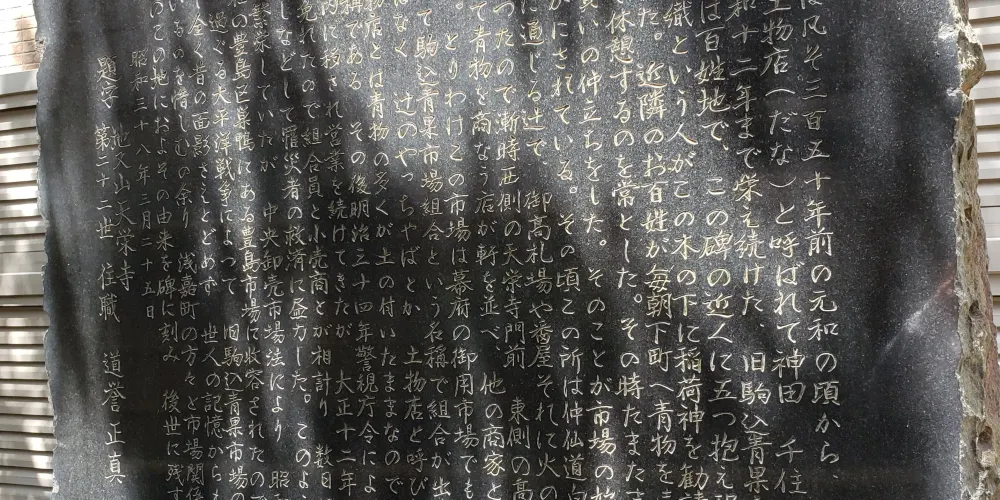 は凡そ三百五十年前の元和の頃から、
土物店(へだな)と呼ばれて神田 千住
和十二年まで栄え続けた、旧駒込青果
は百姓地で、この碑の近人に五つ抱え
織という人がこの木の下に稲荷神を勧請
た。近隣のお百姓が毎朝下町へ青物を
休憩するのを常とした。その時たまたま
買いの仲立ちをした。そのことが市場の始
かにされている。その頃この所は仲仙道
に通じる辻で、御高札場や番屋それに火の
ったので漸時西側の天栄寺門前 東側の高
て青物を商なう店が軒を並べ、他の商家と
。とりわけこの市場は幕府の御用市場でも
て駒込青果市場組合という名称で組合が出
はなく 辻のやっちゃばとか 土物店と呼び
物店とは青物の多くが土の付いたままなので
称である その後明治三十四年警視庁令によ
内に移され営業を続けてきたが 大正十二年
免れたので組合員と小売商とが相計り 数日
しなどして罹災者の救済に尽力した。このよ
繁栄していたが 中央卸売市場法により 昭
在の豊島区巣鴨にある豊島市場に收容されたので
過ぐる太平洋戦争によって 旧駒込青果市場の
全く昔の面影さえとどめず 世人の記憶からも
いるのを惜しむの余り 浅嘉町の方々と市場関係
いにこの地におよその由来を碑に刻み 後世に残す
昭和三十八年三月二十五日
題字 池之山天栄寺 第二十二世 住職 道誉正真